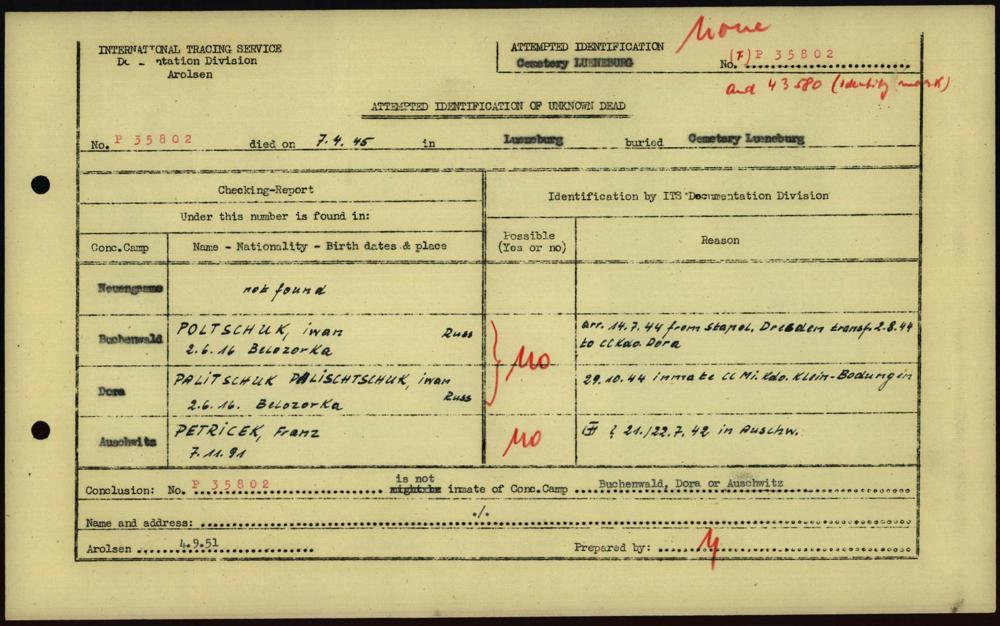 INTERNATIONAL TRACING SERVICE
Documentation Division
Arolsen
ATTEMPTED IDENTIFICATION
Cemetery LUENEBURG
None
No. (F) P 35802
and 43580 (identity mark)
ATTEMPTED IDENTIFICATION OF UNKNOWN DEAD
No. P 35802 died on 7.4.45 in Lueneburg buried Cemetery Lueneburg
Checking-Report
Identification by ITS Documentation Division
Under this number is found in:
Possible
(Yes or no)
Reason
Conc.Camp
Name - Nationality - Birth dates & place
Neuengamme
not found
Buchenwald
POLTSCHUK, iwan Russ
2.6.16 Belozorka
arr. 14.7.44 from Stapol. Dresden transf. 2.8.44
to CCKdo. Dora
no
Dora
PALITSCHUK PALISCHTSCHUK, iwan
Russ
2.6.16. Belozorka
29.10.44 inmate CC Mi. Kdo. Klein-Bodungen
Auschwitz
PETRICEK, Franz
7.11.91
no
21./22.7.42 in Auschw.
Conclusion: No. P 35802 is not might be inmate of Conc.Camp Buchenwald, Dora or Auschwitz
Name and address: ./.
Arolsen 4.9.51
Prepared by: